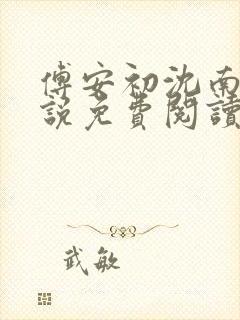 傅安初沈南
說免費閱讀
武敏